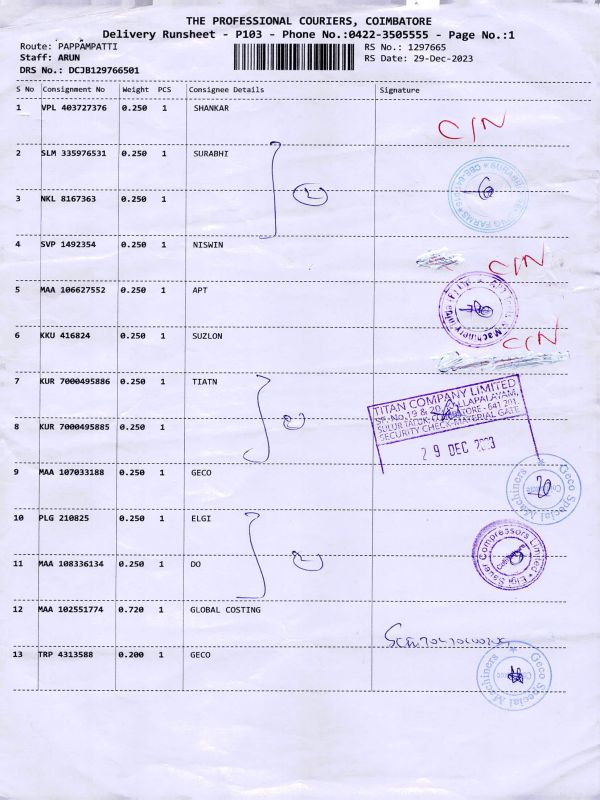 THE PROFESSIONAL COURIERS, COIMBATORE
Delivery Runsheet - P103 - Phone No.:0422-3505555 - Page No.:1
Route: PAPPAMPATTI RS No.: 1297665
Staff: ARUN RS Date: 29-Dec-2023
DRS No.: DCJB129766501
S No Consignment No Weight PCS Consignee Details Signature
1 VPL 403727376 0.250 1 SHANKAR C/N
2 SLM 335976531 0.250 1 SURABHI
SURABHI
3 NKL 8167363 0.250 1
4 SVP 1492354 0.250 1 NISWIN C/N
5 MAA 106627552 0.250 1 APT
6 KKU 416824 0.250 1 SUZLON C/N
7 KUR 7000495886 0.250 1 TIATN
TITAN COMPANY LIMITED
SULUR TALUK, COIMBATORE - 641 201.
SECURITY CHECK-MATERIAL GATE
29 DEC 2023
8 KUR 7000495885 0.250 1
9 MAA 107033188 0.250 1 GECO
Geco Special Machiners
10 PLG 210825 0.250 1 ELGI
Elgi Sauer Compressors Limited
11 MAA 108336134 0.250 1 DO
12 MAA 102551774 0.720 1 GLOBAL COSTING
13 TRP 4313588 0.200 1 GECO
Geco Special Machiners